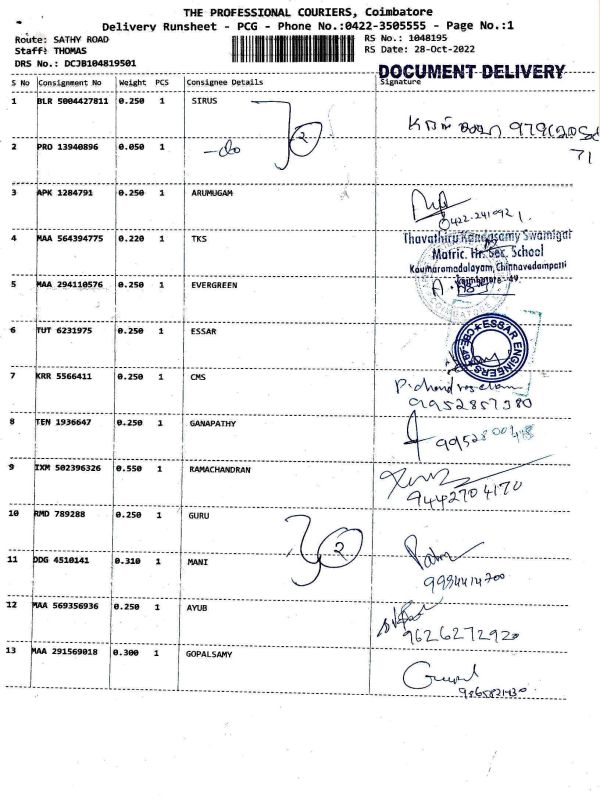 THE PROFESSIONAL COURIERS, Coimbatore
Delivery Runsheet - PCG - Phone No.:0422-3505555 - Page No.:1
Route: SATHY ROAD
RS No.: 1048195
Staff: THOMAS
RS Date: 28-Oct-2022
DRS No.: DCJB104819501
DOCUMENT DELIVERY
S No Consignment No Weight PCS Consignee Details Signature
1 BLR 5004427811 0.250 1 SIRUS
2
2 PRO 13940896 0.050 1 -do
71
3 APK 1284791 0.250 1 ARUMUGAM
4 MAA 564394775 0.220 1 TKS
Thavathiru Kandasamy Swamigal
Matric. Hr. Sec. School
Koumaramadalayam, Chinnavedampatti
Coimbatore - 49.
5 MAA 294110576 0.250 1 EVERGREEN
6 TUT 6231975 0.250 1 ESSAR
ESSAR ENGINEERS CBE-49
7 KRR 5566411 0.250 1 CMS
9952857380
8 TEN 1936647 0.250 1 GANAPATHY
9 IXM 502396326 0.550 1 RAMACHANDRAN
9442704170
10 RMD 789288 0.250 1 GURU
2
11 DDG 4510141 0.310 1 MANI
9994414700
12 MAA 569356936 0.250 1 AYUB
9626272920
13 MAA 291569018 0.300 1 GOPALSAMY
9865821430